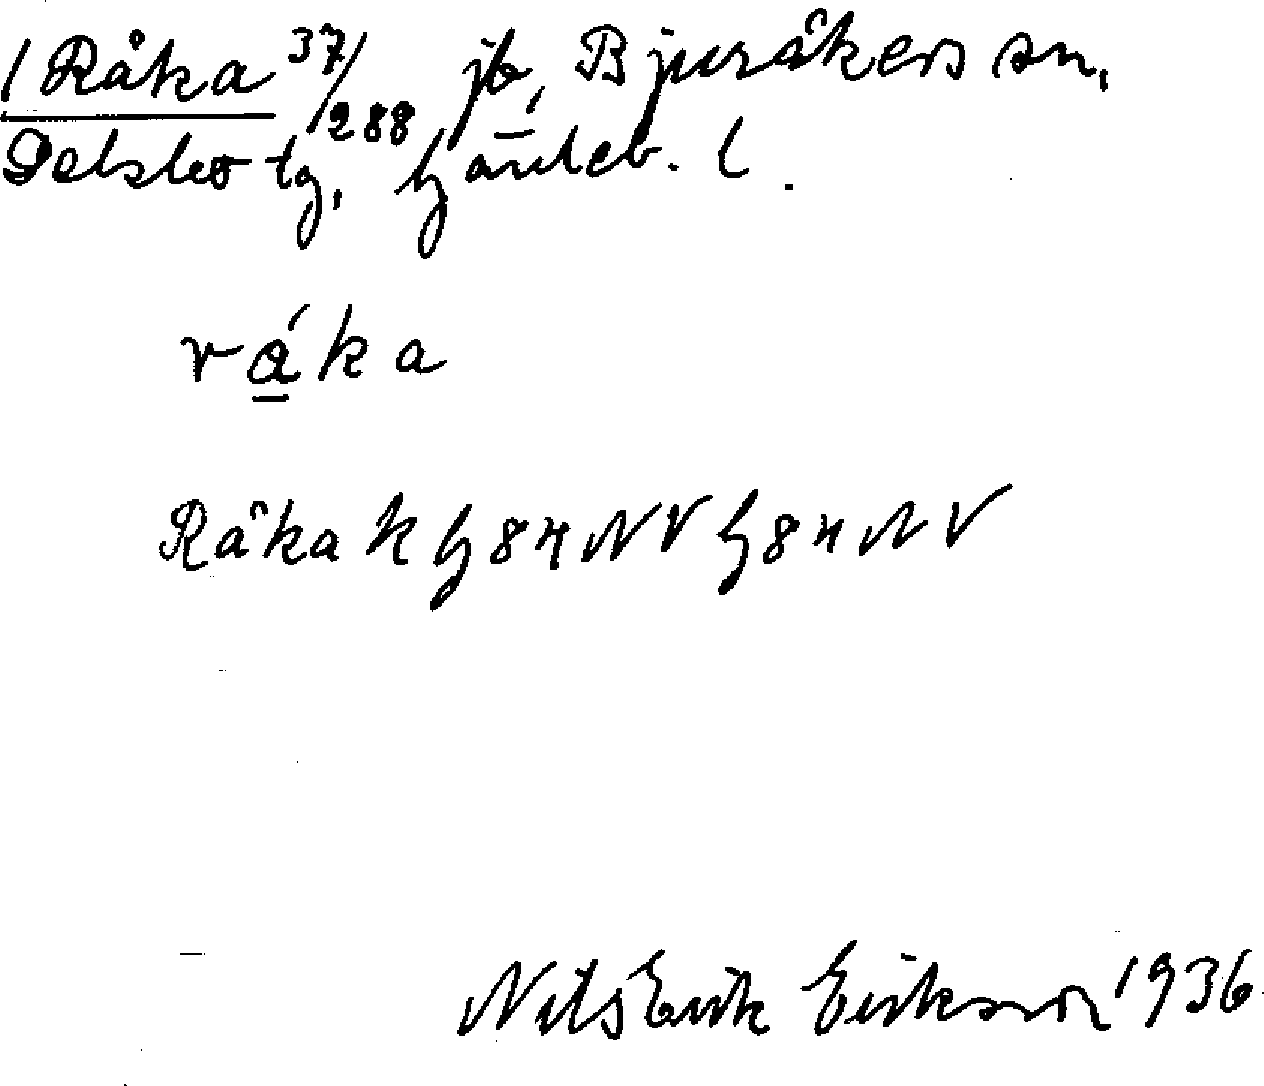 1 Råka 37/288 jb, Bjuråkers sn,
Delsbo tg, Gävleb. l.
ráka
Råka k G 84 NV G 84 NV
Nils Erik Erikson 1936